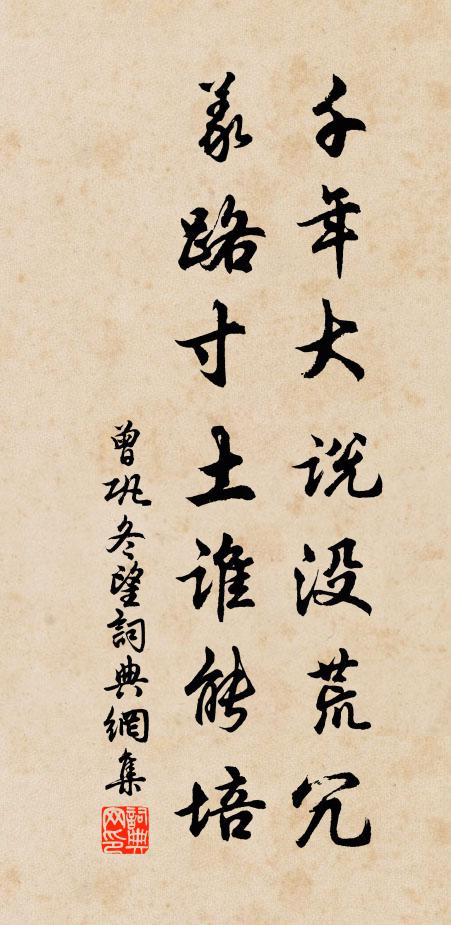 千年大说没荒冗
义路寸土谁能培
曾巩冬望词典網集
詞典网印